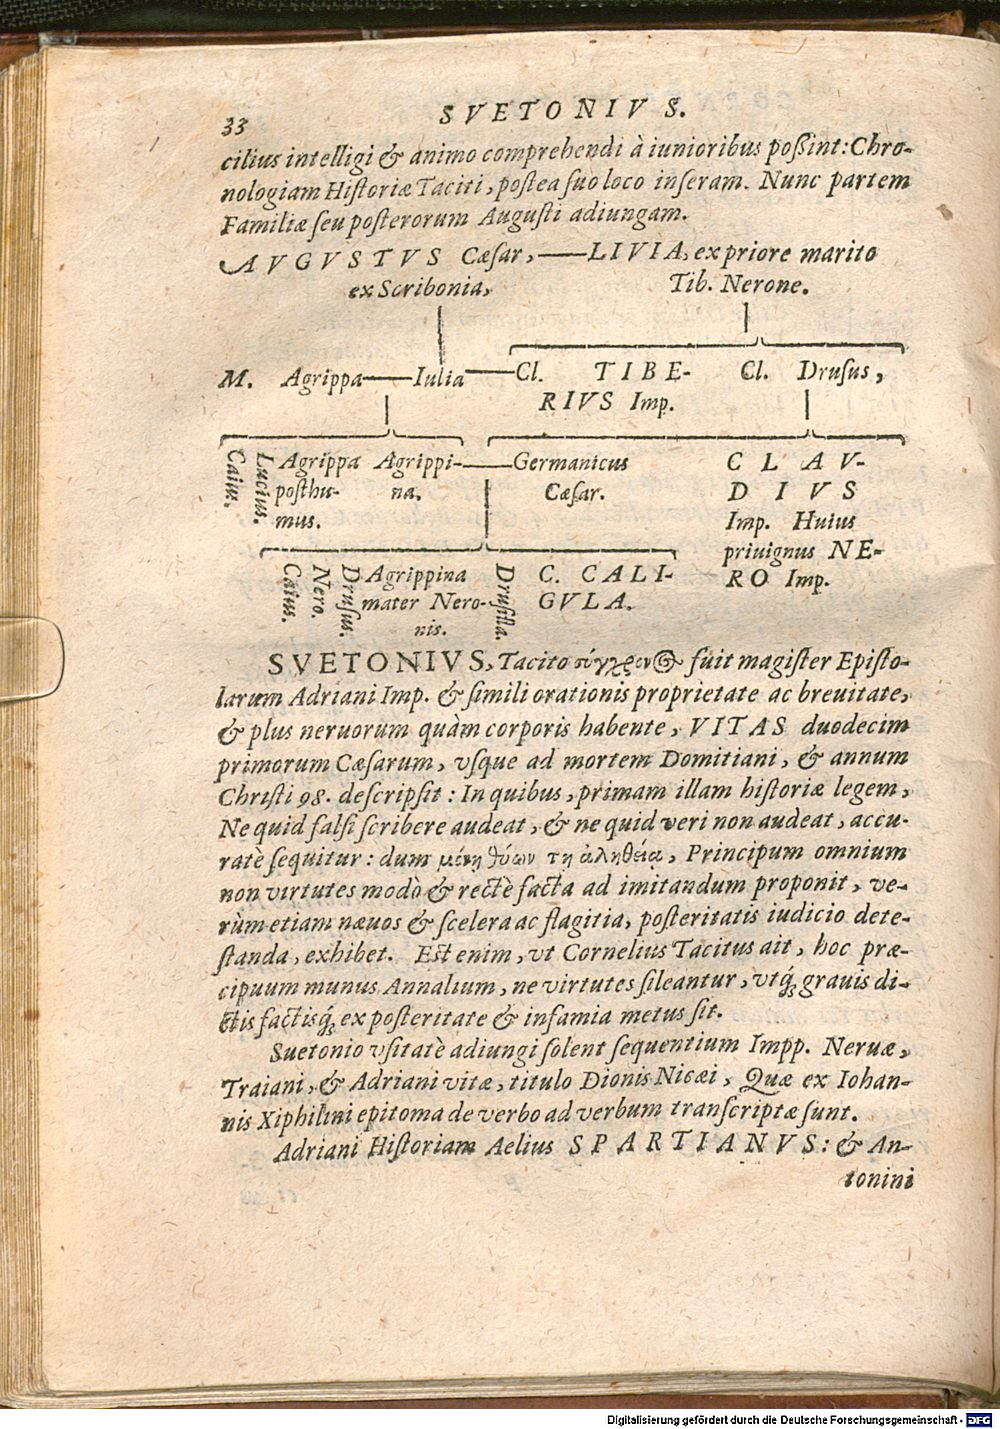 33
SVETONIVS.
cilius intelligi & animo comprehendi à iunioribus poßint: Chro-
nologiam Historiæ Taciti, postea suo loco inseram. Nunc partem
Familiæ seu posterorum Augusti adiungam.
AVGVSTVS Cæsar,—LIVIA, ex priore marito
ex Scribonia, Tib. Nerone.
M. Agrippa—Iulia—Cl. TIBE- Cl. Drusus,
RIVS Imp.
Caius.
Lucius.
Agrippa Agrippi-—Germanicus CLAV-
posthu- na. Cæsar. DIVS
mus. Imp. Huius
priuignus NE-
RO Imp.
Caius.
Nero.
Drusus.
Agrippina
mater Nero-
nis.
Drusilla.
C. CALI-
GVLA.
SVETONIVS, Tacito σύγχρον fuit magister Episto-
larum Adriani Imp. & simili orationis proprietate ac breuitate,
& plus neruorum quàm corporis habente, VITAS duodecim
primorum Cæsarum, vsque ad mortem Domitiani, & annum
Christi 98. descripsit: In quibus, primam illam historiæ legem,
Ne quid falsi scribere audeat, & ne quid veri non audeat, accu-
ratè sequitur: dum τη ἀληθεία, Principum omnium
non virtutes modò & rectè facta ad imitandum proponit, ve-
rùm etiam næuos & scelera ac flagitia, posteritatis iudicio dete-
standa, exhibet. Est enim, vt Cornelius Tacitus ait, hoc præ-
cipuum munus Annalium, ne virtutes sileantur, vtq́; prauis di-
ctis factisq́; ex posteritate & infamia metus sit.
Suetonio vsitatè adiungi solent sequentium Impp. Neruæ,
Traiani, & Adriani vitæ, titulo Dionis Nicæi, Quæ ex Iohan-
nis Xiphilini epitoma de verbo ad verbum transcriptæ sunt.
Adriani Historiam Aelius SPARTIANVS: & An-
tonini
Digitalisierung gefördert durch die Deutsche Forschungsgemeinschaft - DFG